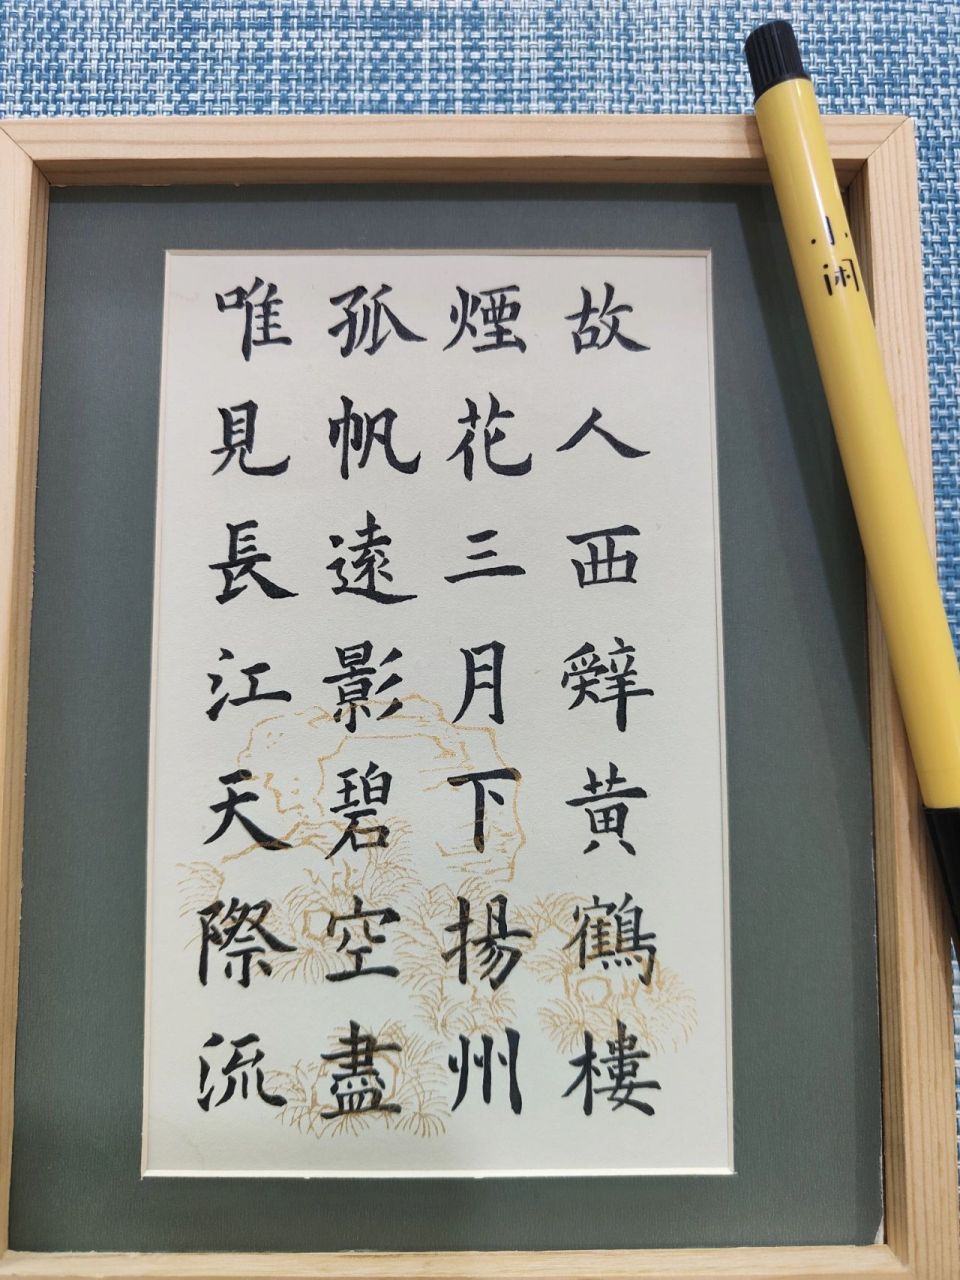 故人西辤黄鶴樓
煙花三月下揚州
孤帆遠影碧空盡
唯見長江天際流
小闲